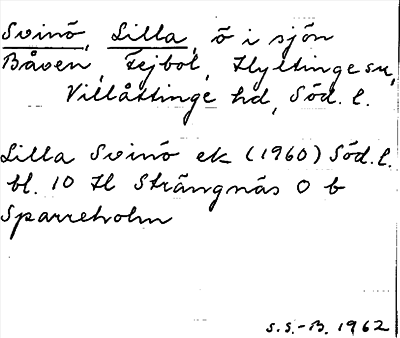 Svinö, Lilla, ö i sjön
Båven, Tejbol, Hyltinge sn,
Villåttinge hd, Söd. l.
Lilla Svinö ek (1960) Söd. l.
bl. 10 Il Strängnäs O b
Sparreholm
S.S.-B. 1962